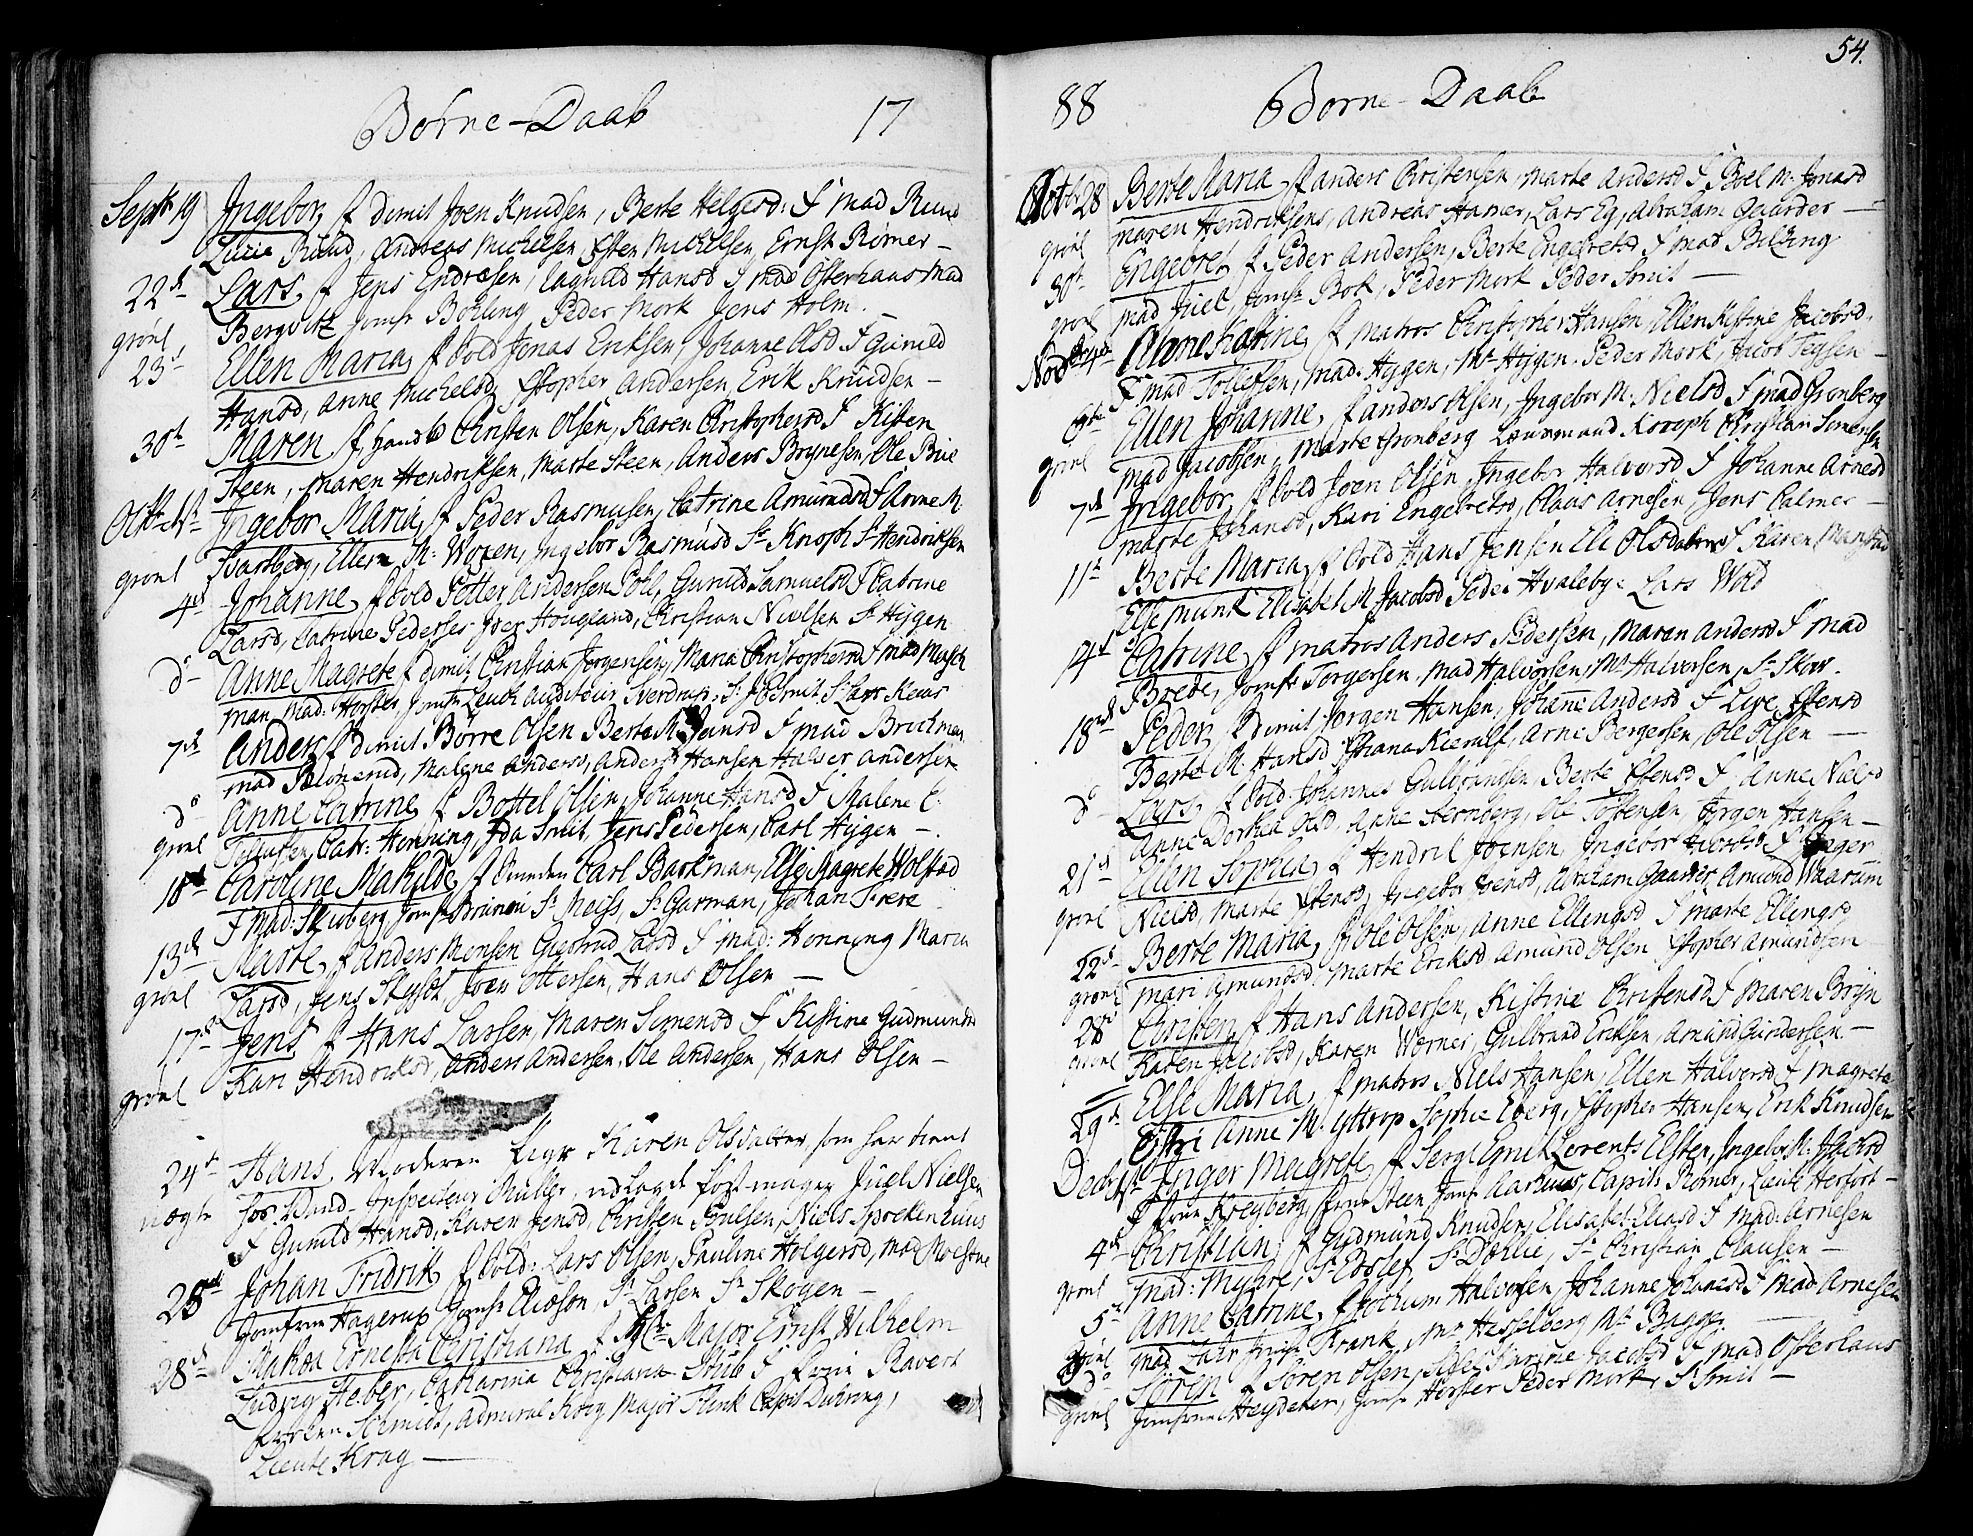 Børne-Daab 17
Septbr 19 Ingebor, f dimit Joen Knudsen, Berte Helgersd: F mad Ruud
Lucie Ruud, Andreas Michelsen, Esten Michelsen, Ernst Rømer -
22d Lars, f Jens Endresen, Ragnild Hansd F mad Osterhaus mad
grønl Bergvitz Jomfr Bøhling Peder Mork Jens Holm. -
23d Ellen Maria, f Sold Jonas Eriksen, Johanne Olsd F Gunild
Hansd, Anne Michelsd, Christopher Andersen, Erik Knudsen -
30te Maren f handl Christen Olsen, Karen Christophersd F Kisten
Steen, Maren Hendriksen, Marte Steen, Anders Brynesen, Ole Bue
Octbr 1st Ingebor Maria, f Peder Rasmusen, Catrine Amundsd F Anne M
grønl Svartberg, Ellen M: Woxen, Ingebor Rasmusd Sr Knoph Sr Hendriksen
4d Johanne, f Sold Petter Andersen Pohl, Gunild Samuelsd F Catrine
Larsd, Catrine Peders Joer Hougland, Christian Nielsen Sr Hygen
do Anne Magrete f dimit Christian Jørgensen, Maria Christophersd F mad Musch
man, mad: Horster, Jomfr Leuch Auditeur Sverdrup, Sr J P Smit, Sr Lars Kevas
7d Anders f dimit Børre Olsen Berte M Svensd F mad Bruchman
mad Blønerud, Malene Andersd, Anders Hansen Halver Andersen
do Anne Catrine, f Bottel Olsen, Johanne Hansd F Malene C:
grønl Tollefsen, Catr: Henning, Ida Smit, Jens Pedersen, Carl Hygen -.
10d Caroline Matilde, f Carl Backman, Else Magrete Wolstad
F Mad: Skioberg, Jomfr Brünni Sr Meiss, Sr Garman, Johan Frere -
13d Marte, f Anders Monsen Giertrud Larsd F mad: Henning Maria
grønl Larsd, Jens Skytt Joen Ottersen, Hans Olsen -
17d Jens f Hans Larsen, Maren Simensd F Kistine Gudmundsd
grønl Kari Hendriksd, Anders Andersen, Ole Andersen, Hans Olsen -
24d Hans, Moderen Pige Karen Olsdatter, som har tient
uægte hos Vund-Inspecteur Müller, udlagde Post-mager Juel Nielsen
F Gunild Hansd, Karen Jensd, Christen Poulsen, Niels Sprekenhuus
25d Johan Fridrik f Sold: Lars Olsen, Pauline Holgersd, mad Moestue
Jomfrue Hagerup Jomfr Eliæson, Sr Larsen Sr Skogen -
28d Maktea Ernesta Christiana f Major Ernst Wilhelm
Ludvig Heber, Catharina Christiana Stub F Frue Ravert
Frøken Schmidt, Admiral Krog Major Flink Capit During,
Lieutn Krag -
88 Børne-Daab 54.
Octbr 28 Berte Maria f Anders Christensen, Marte Andersd F Boel M. Jonasd
grønl Maren Hendriksens, Andreas Hamer, Lars Eg, Abraham Gaarder -
30te Engebret f Peder Andersen, Berte Engebretsd F mad Bilking
grønl mad Juel, Jomfr Bok, Peder Mork Peder Smit -
Novbr 4 Anne Katrine, f matros Christopher Hansen, Ellen Kistine Jacobsd.
F mad Tollefsen, mad. Hygen, Mr Hygen. Peder Mork, Jacob Tegsen -
6te Ellen Johanne, f Anders Olsen, Ingebor M: Nielsd F mad Grønberg
grønl mad Jacobsen, Marte Grønberg Knoph Christian Simensen
7d Ingebor f Sold Joen Olsen, Ingebor Halversd F Johanne Arnesd
Marte Johansd, Kari Engebretsd, Claas Arnesen, Jens Calmer -
11te Berte Maria, f Sold Hans Jensen Eli Olsdatter F Karen Manstad
Else Munk Elisabet M. Jacobsd Peder Hvalebye Lars Wold
14d Catrine f matros Anders Pedersen, Maren Andersd F mad
Brede, Jomfr Torgersen, mad Halvorsen, Mr Halvorsen, Sr Skov.
18d Peder, f dimit. Jørgen Hansen, Johanne Andersd F Live Estensd
Berte M. Hansd, Christiana Kierulf, Arne Bergersen, Ole Olsen -
do Lars, f Sold: Johannes Gulbrandsen Berte Estensd F Anne Nielsd
Anne Dorthea Olsd, Anne Sternberg, Ole Tostensen, Jørgen Hansen -
21d Ellen Sophia f Hendrik Joensen, Ingebor Jacobsd F Inger
grønl Nielsd, Marte Estensd, Ingebor Svensd, Abraham Gaarder, Amund Waarum
22d Berte Maria, f Ole Olsen, Anne Ellingsd F Marte Ellingsd
grønl Mari Amundsd, Marte Eriksd Amund Olsen Christopher Amundsen
28d Christen, f Hans Andersen, Kistine Christensd F Maren Bryn
grønl Karen Jacobsd, Karen Werner, Gulbrand Eriksen, Amund Gundersen -
29d Else Maria, f matros Niels Hansen, Ellen Halversd F Magrete
Anne M. Yttrop Sophie Eberg, Christopher Hansen, Erik Knudsen
Decbr 1st Inger Magrete, f Serg Lorents Elster, Ingebor M: Jacobsd
F Frue Kreyberg Frue Steen Jomfr Aarhuus, Capit: Rømer, Lieutn Herfort -
4d Christian f Gudmund Knudsen, Elisabet Eliasd F Mad: Arnesen
grønl mad: Myhre, Sr Dælie, Sr Christian Clausen -
5te Anne Catrine, f Jochum Halvorsen, Johanne Johanesd F mad Arnesen
grønl mad Lahr Jomfr Krank, Mr Hesselberg Mr Bugge
do Søren f Søren Olsen, Sidsel Karine Jacobsd F mad Osterhaus
grønl Jomfrue Heydeker, Jomfr Horster Peder Mork, S Smit -